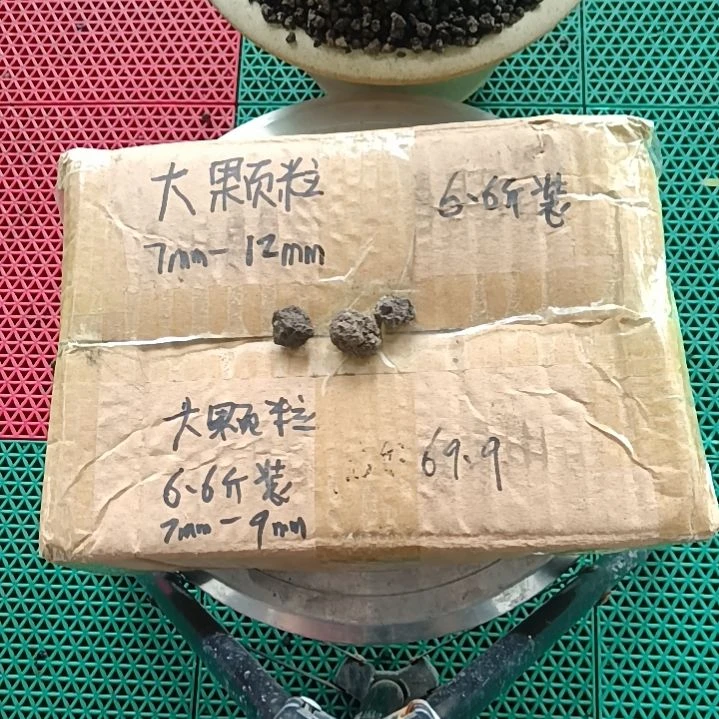 大颗粒
6.6斤装
7mm-12mm
大颗粒
6.6斤装
7mm-9mm
69.9